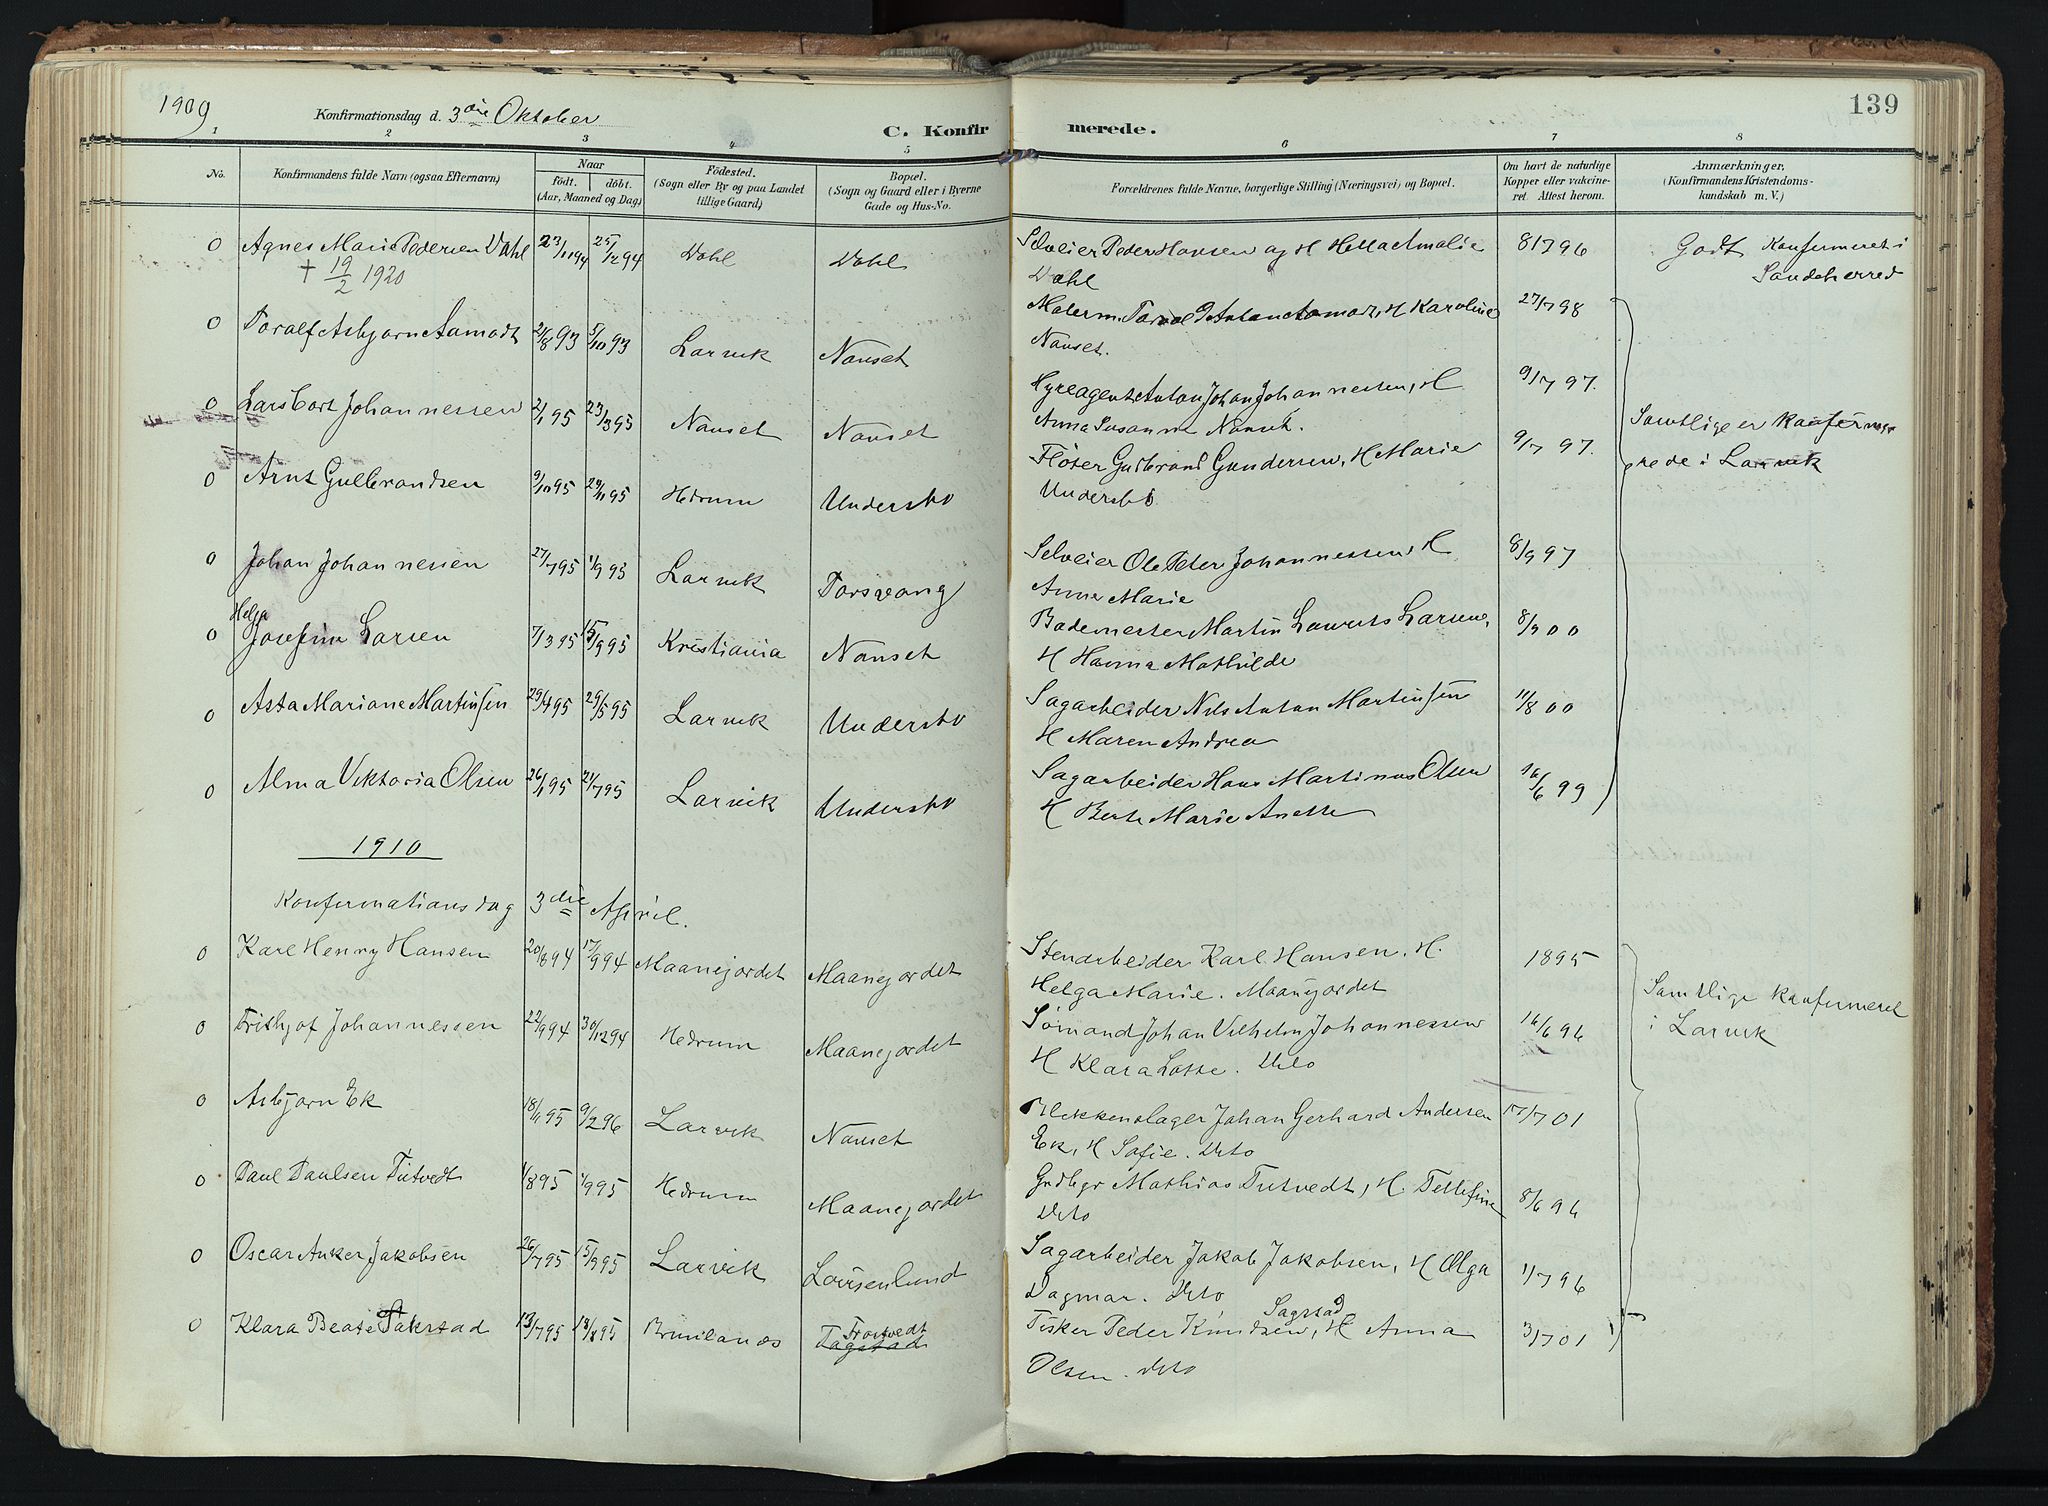 1909
Konfirmationsdag d. 3die Oktober
C. Konfirmerede.
139
1 2 3 4 5 6 7 8
No.
Konfirmandens fulde Navn (ogsaa Efternavn)
Naar
födt. döbt.
(Aar, Maaned og Dag)
Födested.
(Sogn eller By og paa Landet
tillige Gaard)
Bopæl.
(Sogn og Gaard eller i Byerne
Gade og Hus-No.
Forældrenes fulde Navne, borgerlige Stilling (Næringsvei) og Bopæl.
Om havt de naturlige
Kopper eller vakcine-
ret. Attest herom.
Anmærkninger,
(Konfirmandens Kristendoms-
kundskab m. V.)
0 Agnes Marie Pedersen Dahl 23/11 94 25/12 94 Dahl Dahl Selveier Peder Hansen og H Amalie 8/7 96 Godt Konfermeret i
† 19/2 1920 Dahl Sandeherred
0 Toralf Asbjørn Aamodt 2/8 93 5/10 93 Larvik Nanset Malerm. Anton Aamodt, H Karoline 27/7 98
Nanset.
0 Lars Johannessen 2/1 95 23/3 95 Nanset Nanset Hyreagent Anton Johan Johannessen, H 9/7 97.
Anna Susanne Nanset. Samtlige er konferme-
0 Arnt Gulbrandsen 9/10 95 29/11 95 Hedrum Undersbo Fløter Gulbrand Gundersen, H Marie 9/7 97. rede i Larvik
Undersbo
0 Johan Johannessen 27/7 95 1/9 95 Larvik Torsvang Selveier Ole Peter Johannessen, H 8/9 97
Anne Marie
0 Helga Josefine Larsen 7/3 95 15/9 95 Kristiania Nanset Bademester Martin Laurits Larsen, 8/9 00
H Hanna Mathilde
0 Asta Mariane Martinsen 29/4 95 29/5 95 Larvik Undersbo Sagarbeider Nils Anton Martinsen 11/8 00
H Maren Andrea
0 Alma Viktoria Olsen 26/1 95 21/7 95 Larvik Undersbo Sagarbeider Hans Martinus Olsen 16/6 99
H Berte Marie Anette
1910
Konfermationsdag 3die April.
0 Karl Henry Hansen 20/8 94 17/9 94 Maanejordet Maanejordet Stenarbeider Karl Hansen, H. 1895
Helga Marie. Maanejordet Samtlige konfermeret
0 Frithjof Johannessen 22/9 94 30/12 94 Hedrum Maanejordet Sømand Johan Vilhelm Johannessen 16/6 96 i Larvik
H Klara Lotte. Dito
0 Asbjørn Ek 18/11 95 9/2 96 Larvik Nanset Blikkenslager Johan Gerhard Andersen 17/7 01
Ek, H Sofie. Dito
0 Paul Paulsen Tutvedt 1/8 95 1/9 95 Hedrum Maanejordet Grdbgr Mathias Tutvedt, H. Tellefine 8/6 96
Dito
0 Oscar Anker Jakobsen 26/7 95 15/9 95 Larvik Lovisenlund Sagarbeider Jakob Jakobsen, H Olga 1/7 96
Dagmar. Dito
0 Klara Beate 13/7 95 18/8 95 Brunlanæs Frostvedt Fisker Peder Knudsen Sagstad, H Anna 3/7 01
Olsen. dito